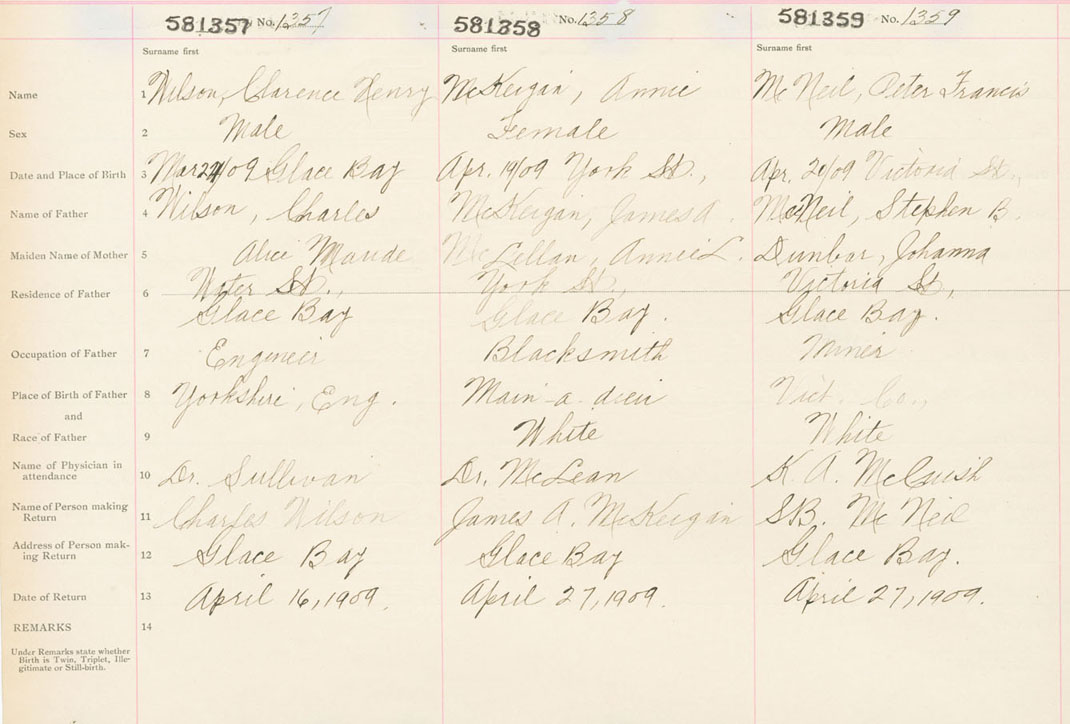 581357 No. 1357 581358 No. 1358 581359 No. 1359
Surname first Surname first Surname first
Name 1 Wilson, Clarence Henry McKeigan, Annie McNeil, Peter Francis
Sex 2 Male Female Male
Date and Place of Birth 3 Mar 24/09 Glace Bay Apr. 19/09 York St., Apr. 20/09 Victoria St.,
Name of Father 4 Wilson, Charles McKeigan, James A. McNeil, Stephen B.
Maiden Name of Mother 5 Alice Maude McLellan, Annie L. Dunbar, Johanna
Residence of Father 6 Water St., York St., Victoria St,
Glace Bay Glace Bay. Glace Bay.
Occupation of Father 7 Engineer Blacksmith Miner
Place of Birth of Father 8 Yorkshire, Eng. Main-a-dieu Vict. Co.,
and
Race of Father 9 White White
Name of Physician in
attendance 10 Dr. Sullivan Dr. McLean K. A. McCuish
Name of Person making
Return 11 Charles Wilson James A. McKeigan S.B. McNeil
Address of Person mak-
ing Return 12 Glace Bay Glace Bay Glace Bay.
Date of Return 13 April 16, 1909. April 27, 1909. April 27, 1909.
REMARKS 14
Under Remarks state whether
Birth is Twin, Triplet, Ille-
gitimate or Still-birth.